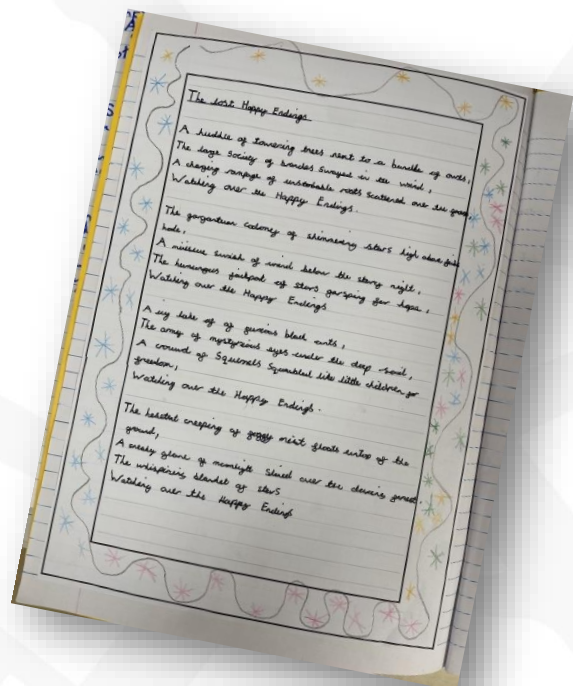 The lost Happy Endings
A huddle of towering trees next to a bundle of ants,
The large Society of branches swayed in the wind,
A charging rampage of unstobable roots scattered over the
Watching over the Happy Endings.
The gargantuan colony of shimmering stars high above
hole,
A minicue swish of wind below the starry night,
The humungus jackpot of stars garsping for hope,
Watching over the Happy Endings
A icy lake of of gurious black ants,
The army of mystyrious eyes under the deep soil,
A crowd of Squirrels Squabbled like little children for
freedom,
Watching over the Happy Endings.
The creeping of foggy mist floats ontop of the
ground,
A creaky glane of moonlight over the
The whispering blanket of stars
Watching over the Happy Endings